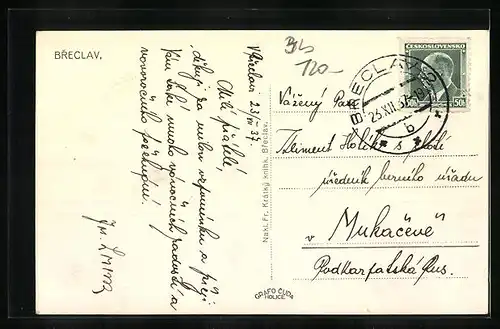 BŘECLAV.
Břeclav 23/XII 37.
Milí přátelé,
děkuji za milou vzpomínku a přeji
Vám také mnoho vánočních radostí a
novoročních
Nakl. Fr. Krátký knihk. Břeclav.
GRAFO ČUDA
HOLICE
120-
ČESKOSLOVENSKO
50h
BŘECLAV
23.XII.37
b
Vážený Pan
Kliment Holík s chotí
úředník berního úřadu
v Mukačevě
Podkarpatská Rus.